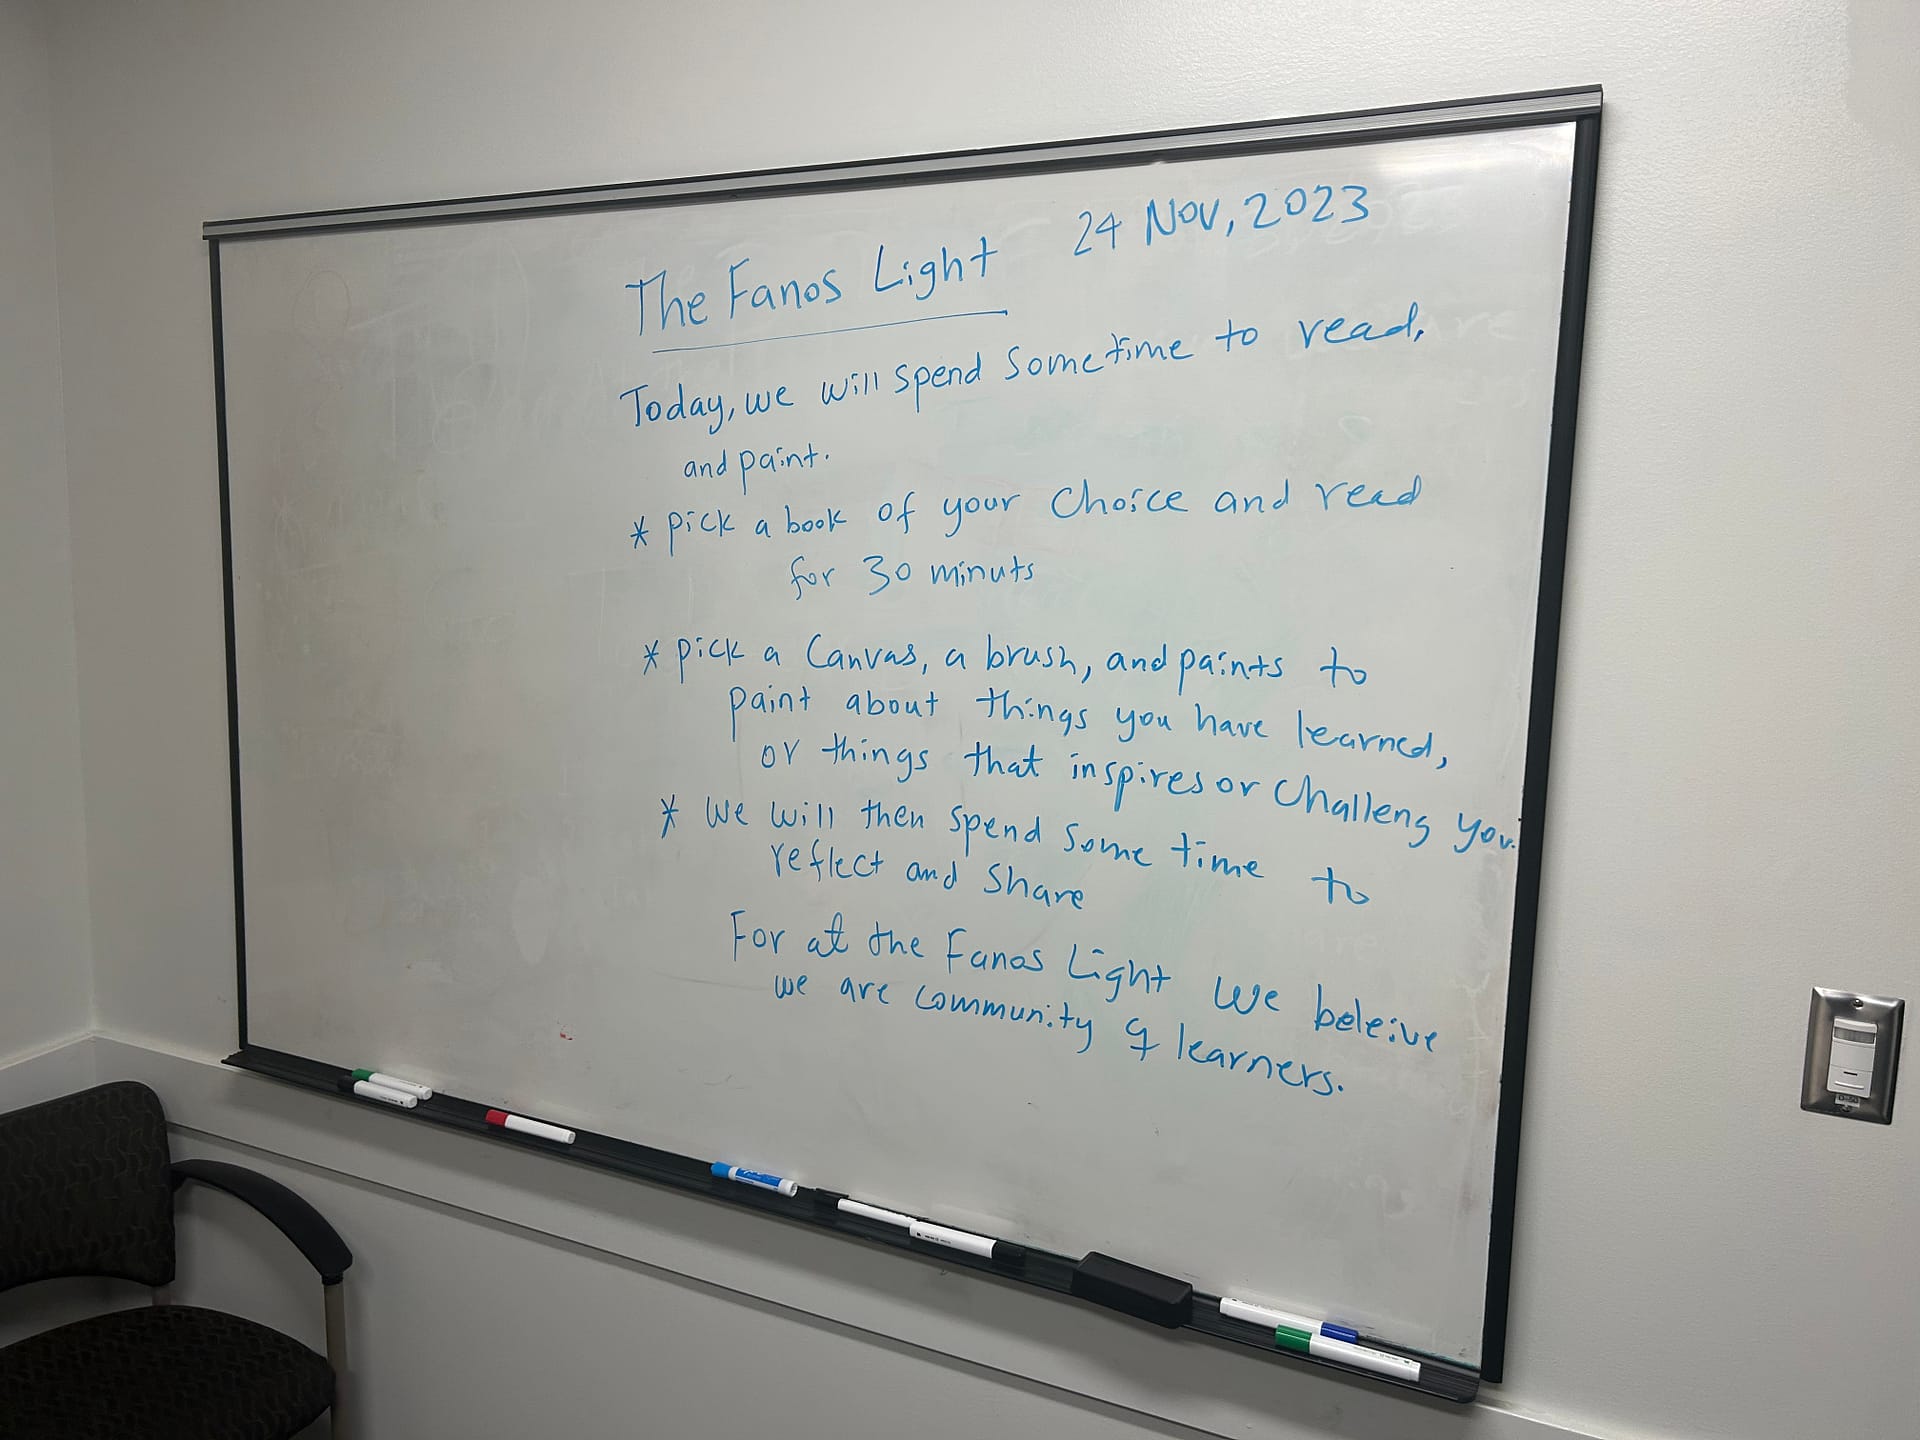 24 Nov, 2023
The Fanos Light
Today, we will spend sometime to read,
and paint.
* pick a book of your choice and read
for 30 minuts
* pick a Canvas, a brush, and paints to
paint about things you have learned,
or things that inspires or challeng you.
* We will then spend some time to
reflect and share
For at the Fanos Light we beleive
we are community of learners.